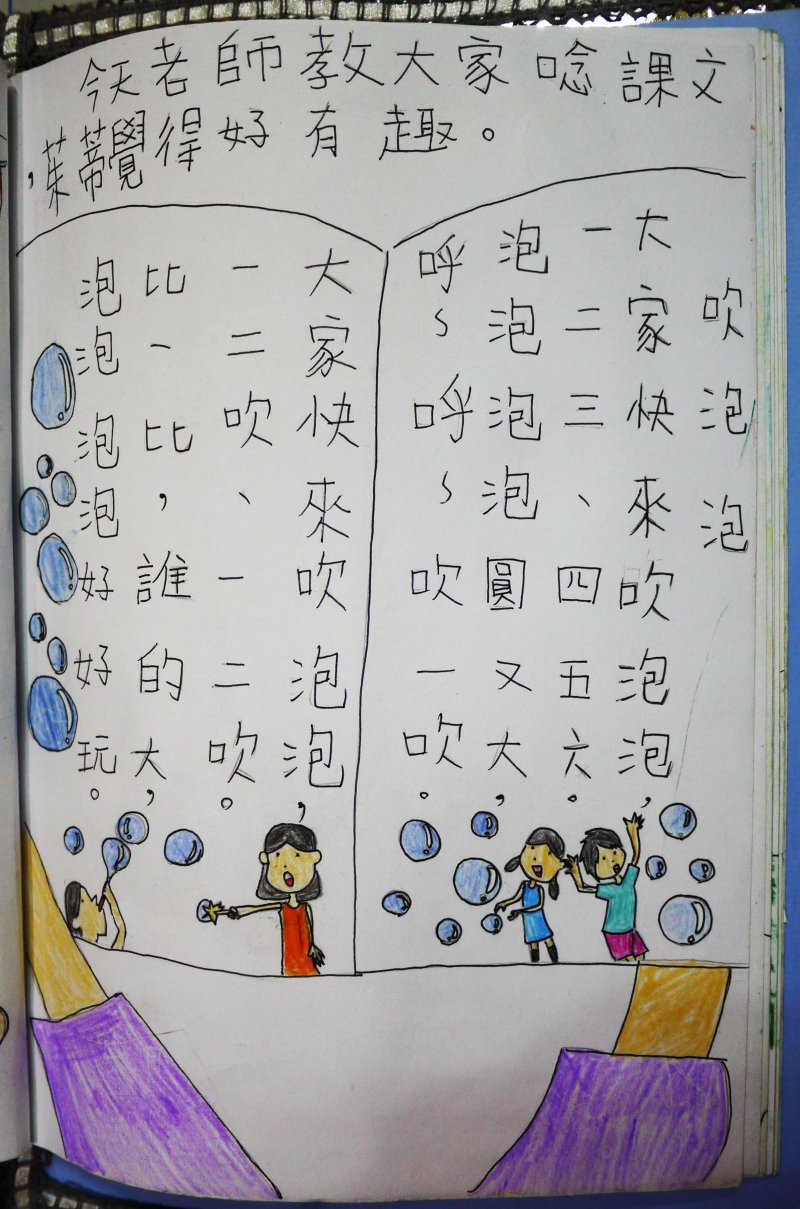 今天老師教大家唸課文
，茱蒂覺得好有趣。
吹泡泡
大家快來吹泡泡，
一二三、四五六。
泡泡泡泡圓又大，
呼～呼～吹一吹。
大家快來吹泡泡，
一二吹、一二吹。
比一比，誰的大，
泡泡泡泡好好玩。